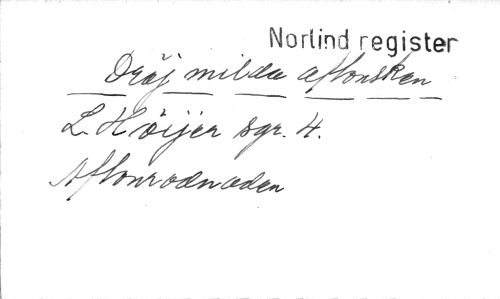 Norlind register
Dröj milda aftonsken
L. Höijer sgr. 4.
Aftonrodnaden